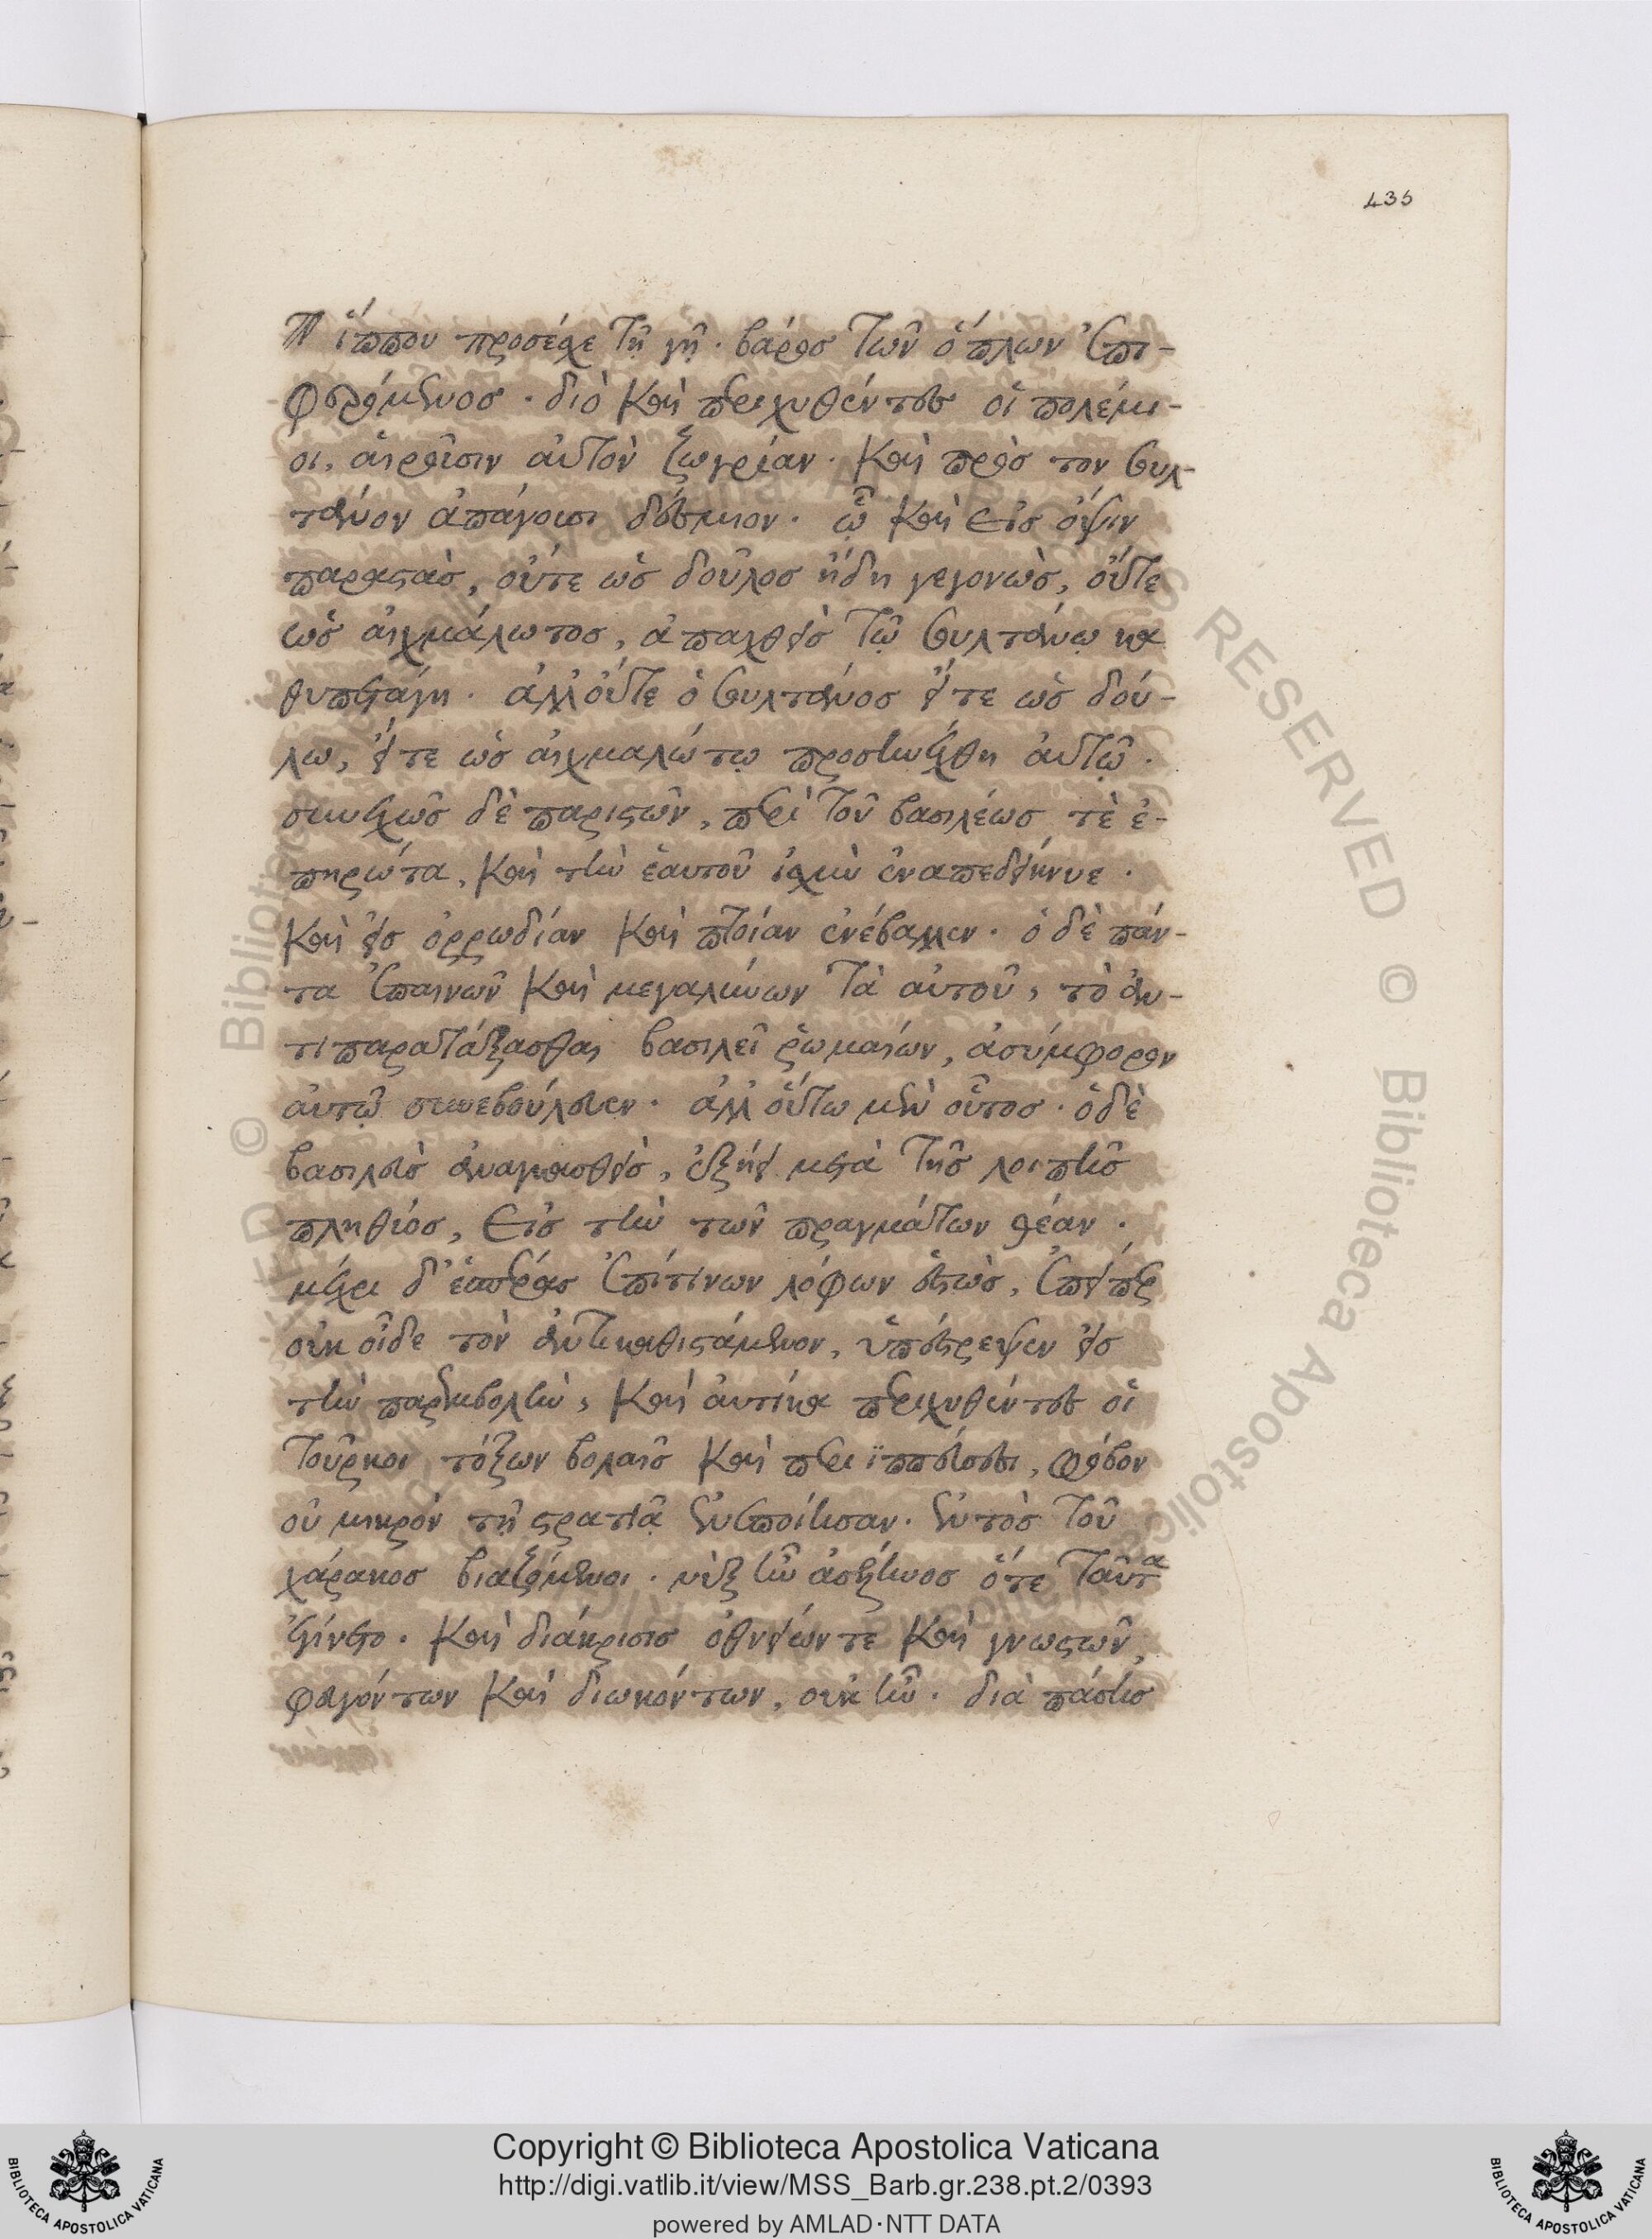 435
τοῦ ἵππου προσέσχε τῇ γῇ. βάρος τῶν ὅπλων ἐπι-
φερόμενος. διὸ καὶ περιχυθέντες οἱ πολέμι-
οι, αἱροῦσιν αὐτὸν ζωγρίαν. καὶ πρὸς τον σουλ-
τάνον ἀπάγουσι δέσμιον. ᾧ καὶ εἰς ὄψιν
παραστὰς, οὔτε ὡς δοῦλος ἤδη γεγονὼς, οὔτε
ὡς αἰχμάλωτος, ἀπαχθεὶς τῷ σουλτάνῳ κα
θυπετάγη. ἀλλ' οὔτε ὁ σουλτάνος οὔτε ὡς δού-
λω, οὔτε ὡς αἰχμαλώτῳ προσηνέχθη αὐτῷ.
συνεχῶς δὲ παριστῶν, περὶ τοῦ βασιλέως τὲ ἐ-
πηρώτα, καὶ τὴν ἑαυτοῦ ἰσχὺν ἐναπεδείκνυε.
καὶ εἰς ὀρρωδίαν καὶ πτοίαν ἐνέβαλλεν. ὁ δὲ πάν-
τα ἐπαινῶν καὶ μεγαλύνων τὰ αὐτοῦ, τὸ ἀν-
τιπαρατάξασθαι βασιλεῖ ῥωμαίων, ἀσύμφορον
αὐτῷ συνεβούλευεν. ἀλλ' οὕτω μὲν οὗτος. ὁ δὲ
βασιλεὺς ἀναγκασθεὶς, ἐξῄει μετὰ τῆς λοιπῆς
πληθύος, εἰς τὴν τῶν πραγμάτων θέαν.
μέχρι δ' ἑσπέρας ἐπί τινων λόφων ἑστὼς, ἐπείπερ
οὐκ οἶδε τὸν ἀντικαθιστάμενον, ὑπέστρεψεν εἰς
τὴν παρεμβολὴν, καὶ αὐτίκα περιχυθέντες οἱ
τοῦρκοι τόξων βολαῖς καὶ περιϊππεύσεσι, φόβον
οὐ μικρὸν τῇ στρατιᾷ ἐνεποίησαν. ἐντὸς τοῦ
χάρακος βιαζόμενοι. νὺξ ἦν ἀσέληνος ὅτε ταῦτα
ἐγίνετο. καὶ διάκρισις ὀθνείων τὲ καὶ γνωστῶν,
φευγόντων καὶ διωκόντων, οὐκ ἦν. διὰ πάσης
Copyright © Biblioteca Apostolica Vaticana
http://digi.vatlib.it/view/MSS_Barb.gr.238.pt.2/0393
powered by AMLAD·NTT DATA